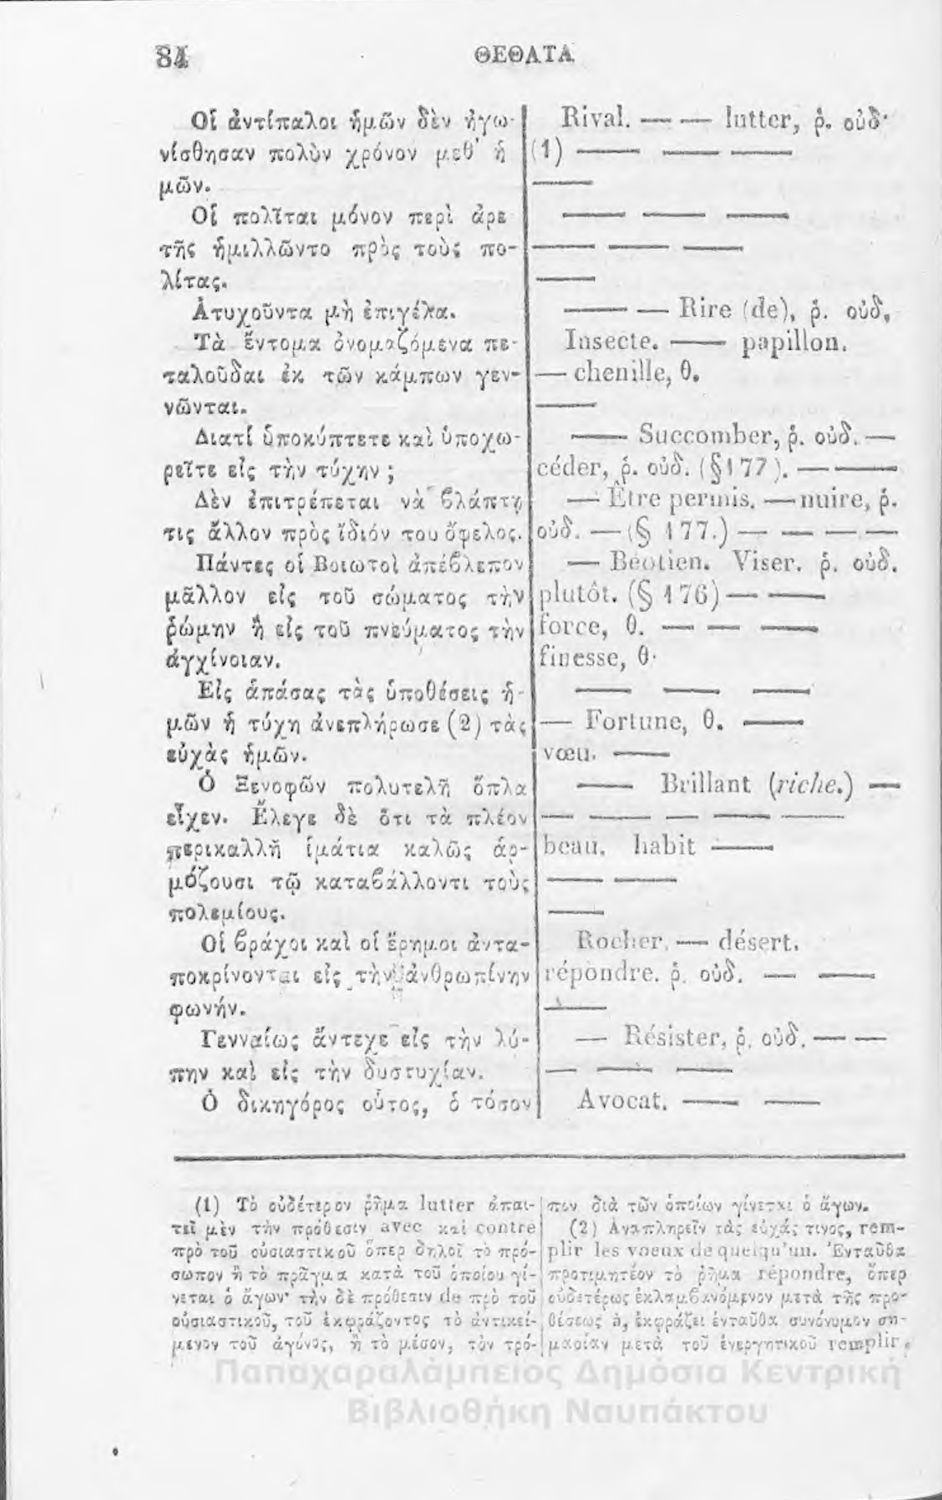 84
ΘΕΘΑΤΑ
Οἱ ἀντίπαλοι ἡμῶν δὲν ἠγω-
νίσθησαν πολὺν χρόνον μεθ' ἡ
μῶν.
Οἱ πολῖται μόνον περὶ ἀρε
τῆς ἡμιλλῶντο πρὸς τοὺς πο-
λίτας.
Ἀτυχοῦντα μὴ ἐπιγέλα.
Τὰ ἔντομα ὀνομαζόμενα πε-
ταλοῦδαι ἐκ τῶν κάμπων γεν-
νῶνται.
Διατί ὑποκύπτετε καὶ ὑποχω-
ρεῖτε εἰς τὴν τύχην ;
Δὲν ἐπιτρέπεται νὰ βλάπτῃ
τις ἄλλον πρὸς ἴδιόν του ὄφελος.
Πάντες οἱ Βοιωτοὶ ἀπέβλεπον
μᾶλλον εἰς τοῦ σώματος τὴν
ῥώμην ἢ εἰς τοῦ πνεύματος τὴν
ἀγχίνοιαν.
Εἰς ἁπάσας τὰς ὑποθέσεις ἡ-
μῶν ἡ τύχη ἀνεπλήρωσε (2) τὰς
εὐχὰς ἡμῶν.
Ὁ Ξενοφῶν πολυτελῆ ὅπλα
εἶχεν. Ἔλεγε δὲ ὅτι τὰ πλέον
περικαλλῆ ἱμάτια καλῶς ἁρ-
μόζουσι τῷ καταβάλλοντι τοὺς
πολεμίους.
Οἱ βράχοι καὶ οἱ ἔρημοι ἀντα-
ποκρίνονται εἰς τὴν ἀνθρωπίνην
φωνήν.
Γενναίως ἄντεχε εἰς τὴν λύ-
πην καὶ εἰς τὴν δυστυχίαν.
Ὁ δικηγόρος οὗτος, ὁ τόσον
Rival. — — lutter, ῥ. οὐδ·
(1) — — —
—
— — —
— — —
—
— — Rire (de), ῥ. οὐδ,
Insecte. — papillon.
— chenille, θ.
—
— Succomber, ῥ. οὐδ. —
céder, ῥ. οὐδ. (§177). — —
— Etre permis. — nuire, ῥ.
οὐδ. — (§ 177.) — — — —
— Béotien. Viser. ῥ. οὐδ.
plutôt. (§ 176) — —
force, θ. — — —
finesse, θ·
— — —
— Fortune, θ. —
vœu. —
— Brillant (riche.) —
— — — — —
beau. habit —
— —
—
Rocher. — désert.
répondre. ῥ. οὐδ. — —
—
— Résister, ῥ. οὐδ. — —
— — —
Avocat. — —
(1) Τὸ οὐδέτερον ῥῆμα lutter ἀπαι-
τεῖ μὲν τὴν πρόθεσιν avec καὶ contre
πρὸ τοῦ οὐσιαστικοῦ ὅπερ δηλοῖ τὸ πρό-
σωπον ἢ τὸ πρᾶγμα κατὰ τοῦ ὁποίου γί-
νεται ὁ ἀγων· τὴν δὲ πρόθεσιν de πρὸ τοῦ
οὐσιαστικοῦ, τοῦ ἐκφράζοντος τὸ ἀντικεί-
μενον τοῦ ἀγῶνος, ἢ τὸ μέσον, τὸν τρό-
πον διὰ τῶν ὁποίων γίνεται ὁ ἄγων.
(2) Ἀναπληρεῖν τὰς εὐχάς τινος, rem-
plir les voeux de quelqu'un. Ἐνταῦθα
προτιμητέον τὸ ῥῆμα répondre, ὅπερ
οὐδετέρως ἐκλαμβανόμενον μετὰ τῆς προ-
θέσεως à, ἐκφράζει ἐνταῦθα συνόνυμον ση-
μασίαν μετὰ τοῦ ἐνεργητικοῦ remplir.
Παπαχαραλάμπειος Δημόσια Κεντρική
Βιβλιοθήκη Ναυπάκτου